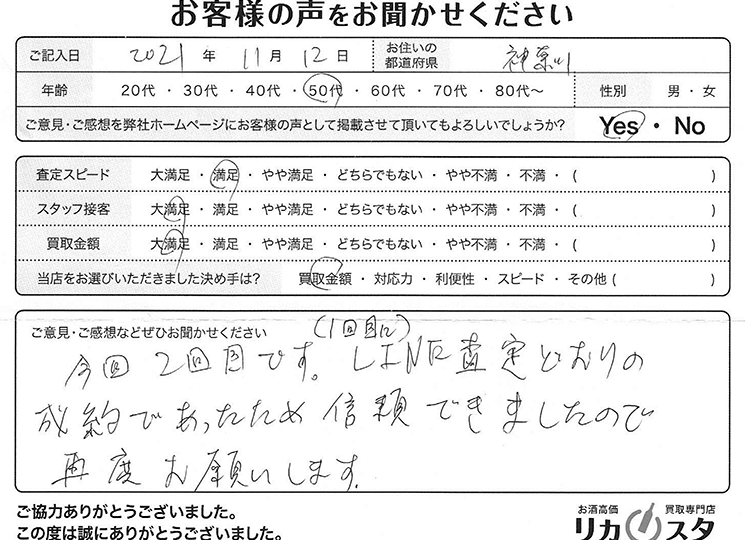 お客様の声をお聞かせください
ご記入日 2021年 11月 12日 お住いの都道府県 神奈川
年齢 20代 ・ 30代 ・ 40代 ・ 50代 ・ 60代 ・ 70代 ・ 80代～ 性別 男 ・ 女
ご意見・ご感想を弊社ホームページにお客様の声として掲載させて頂いてもよろしいでしょうか? Yes ・ No
査定スピード 大満足 ・ 満足 ・ やや満足 ・ どちらでもない ・ やや不満 ・ 不満 ・ ( )
スタッフ接客 大満足 ・ 満足 ・ やや満足 ・ どちらでもない ・ やや不満 ・ 不満 ・ ( )
買取金額 大満足 ・ 満足 ・ やや満足 ・ どちらでもない ・ やや不満 ・ 不満 ・ ( )
当店をお選びいただきました決め手は? 買取金額 ・ 対応力 ・ 利便性 ・ スピード ・ その他 ( )
ご意見・ご感想などぜひお聞かせください
(1回目に)
今回2回目です。LINE査定どおりの
成約であったため信頼できましたので
再度お願いします。
ご協力ありがとうございました。
この度は誠にありがとうございました。
お酒高価 買取専門店
リカスタ